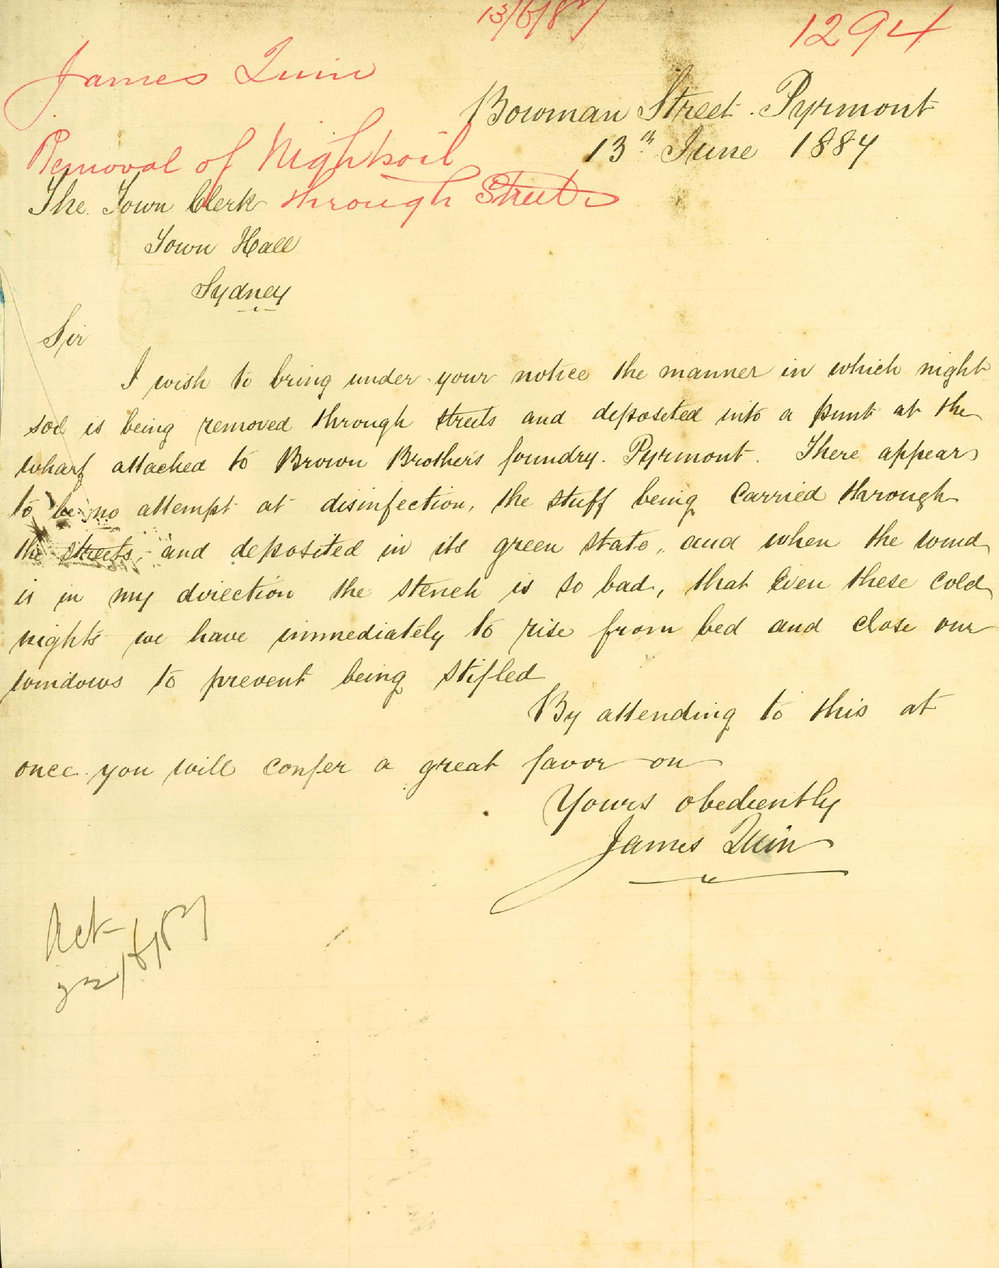 13/6/87
1294
James Quin
Bowman Street. Pyrmont
Removal of Nightsoil
13th June 1887
The Town Clerk through Streets
Town Hall
Sydney
Sir
I wish to bring under your notice the manner in which night
soil is being removed through streets and deposited into a punt at the
wharf attached to Brown Brothers foundry. Pyrmont. There appears
to be no attempt at disinfection, the stuff being carried through
the streets, and deposited in its green state, and when the wind
is in my direction the stench is so bad, that even these cold
nights we have immediately to rise from bed and close our
windows to prevent being stifled
By attending to this at
once you will confer a great favor on
Yours obediently
James Quin
Ack
22/6/87